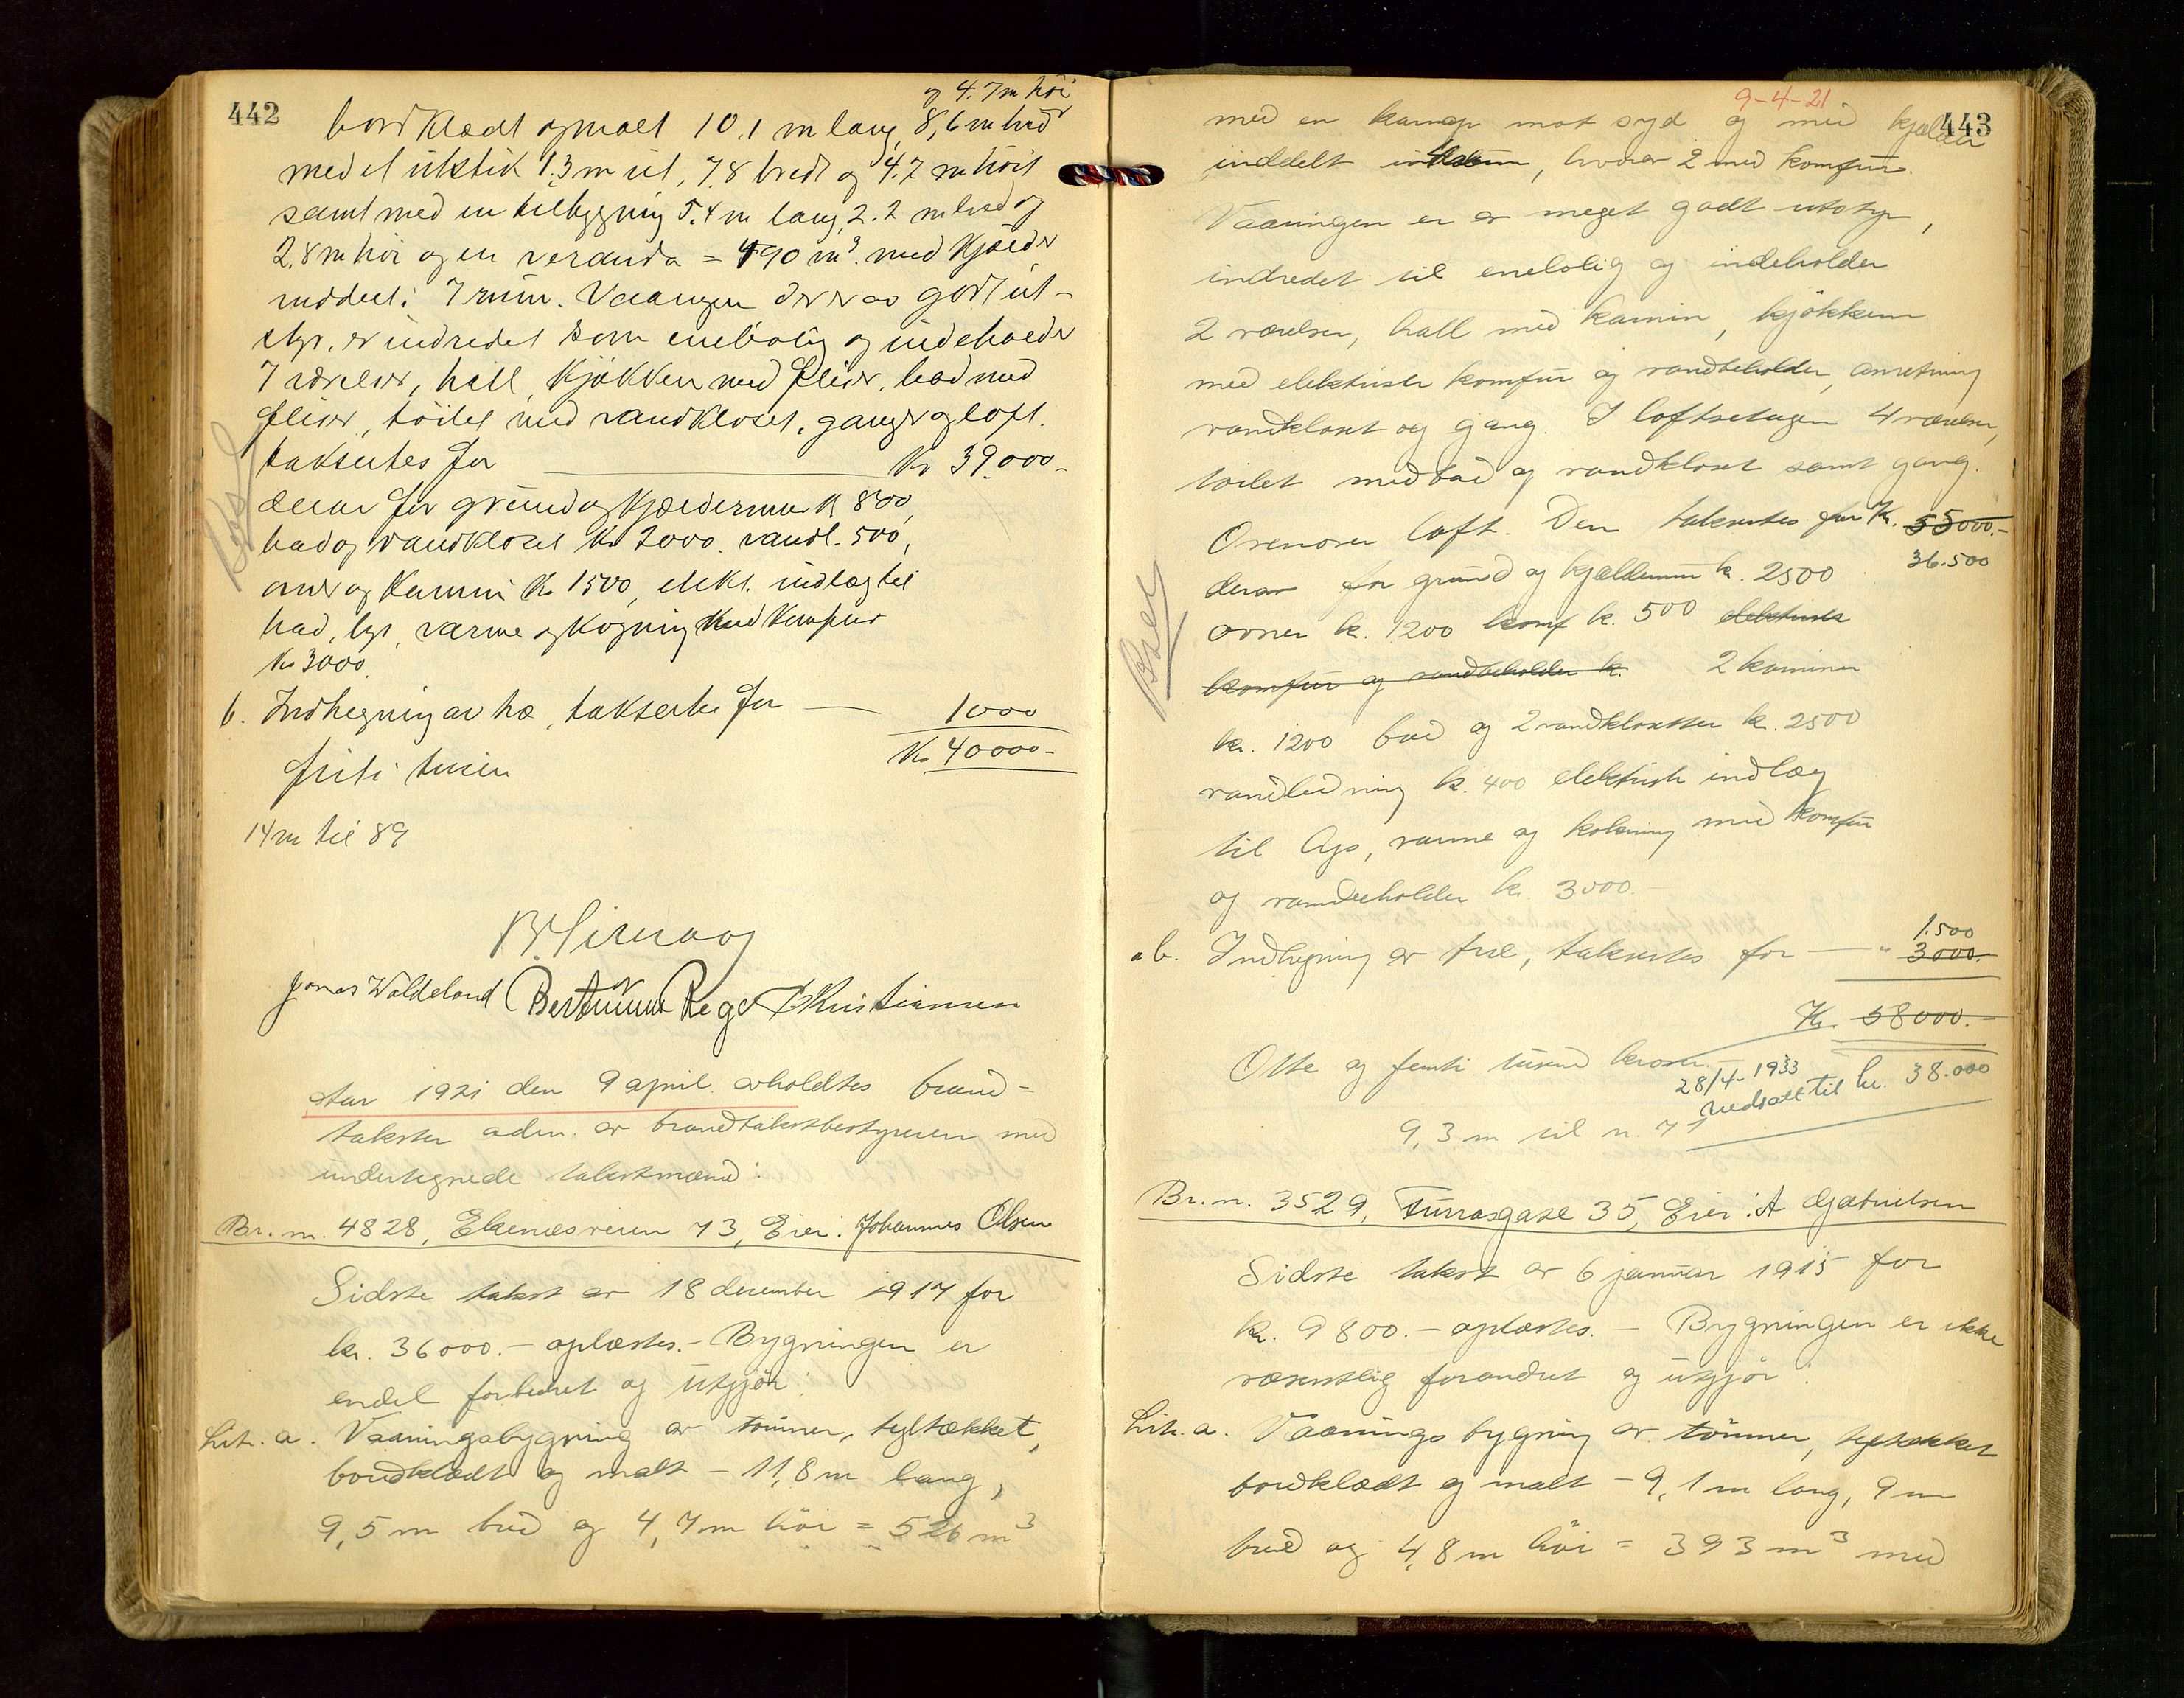 442
og 4.7 m höi
bordklædt og malt 10.1 m lang, 8,6 m bred
med et utstik 1.3 m ut, 7.8 bredt og 4.7 m höit
samt med en tilbygning 5.4 m lang, 2.2 m bred og
2.8 m höi og en veranda = 490 m³. med kjælder
inddelt i 7 rum. Vaaningen der er av godt ut-
styr, er indredet som enebolig og indeholder
7 værelser, hall, kjökken med fliser, bad med
fliser, toilet med vandkloset, ganger og loft.
taksertes for Kr 39.000-
derav for grund og kjældermur kr 800,
bad og vandkloset Kr 2000. vandl. 500,
ovner og kamin Kr 1500, elekt. indlæg til
bad, lys, varme og kogning med komfur
Kr 3000.
b. Indhegning av træ, taksertes for 1000
Kr 40000-
firti tusen
14 m til 89
Jonas Waldeland Rege Kristiansen
Aar 1921 den 9 april avholdtes brand-
takster adm. av brandtakstbestyreren med
undertegnede takstmænd:
Br. nr. 4828, Ekenæsveien 73, Eier: Johannes Olsen
Sidste takst av 18 december 1917 for
kr. 36000.- oplæstes.- Bygningen er
endel forbedret og utgjör:
Lit. a. Vaaningsbygning av tömmer, tegltækket,
bordklædt og malt - 11,8 m lang,
9,5 m bred og 4,7 m höi = 526 m³
443
9-4-21
med en karnap mot syd og med kjælder
inddelt i , hvorav 2 med komfur.
Vaaningen er av meget godt utstyr,
indredet til enebolig og indeholder
2 værelser, hall med kamin, kjökken
med elektrisk komfur og vandbeholder, anretning
vandkloset og gang. I loftsetagen 4 værelser,
toilet med bad og vandkloset samt gang.
Ovenover loft. Den taksertes for Kr. 55000.-
36.500
derav for grund og kjældermur kr. 2500
ovner kr. 1200 komf kr. 500 elektrisk
komfur og vandbeholder kr. 2 kaminer
kr. 1200 bad og 2 vandklosetter kr. 2500
vandledning kr. 400 elektrisk indlæg
til lys, varme og kokning med komfur
og vandbeholder kr. 3000.-
1.500
b. Indhegning av træ, taksertes for - " 3000.-
Kr. 58000.-
Otte og femti tusend kroner.
28/4-1933
nedsatt til kr. 38.000
9,3 m til n. 71
Br. n. 3529, Turrasgate 35, Eier: A Gjetmilsen
Sidste takst av 6 januar 1915 for
kr. 9800.- oplæstes. - Bygningen er ikke
væsentlig forandret og utgjör:
Lit. a. Vaaningsbygning av tömmer, tegltækket
bordklædt og malt - 9,1 m lang, 9 m
bred og 4,8 m höi = 393 m³ med